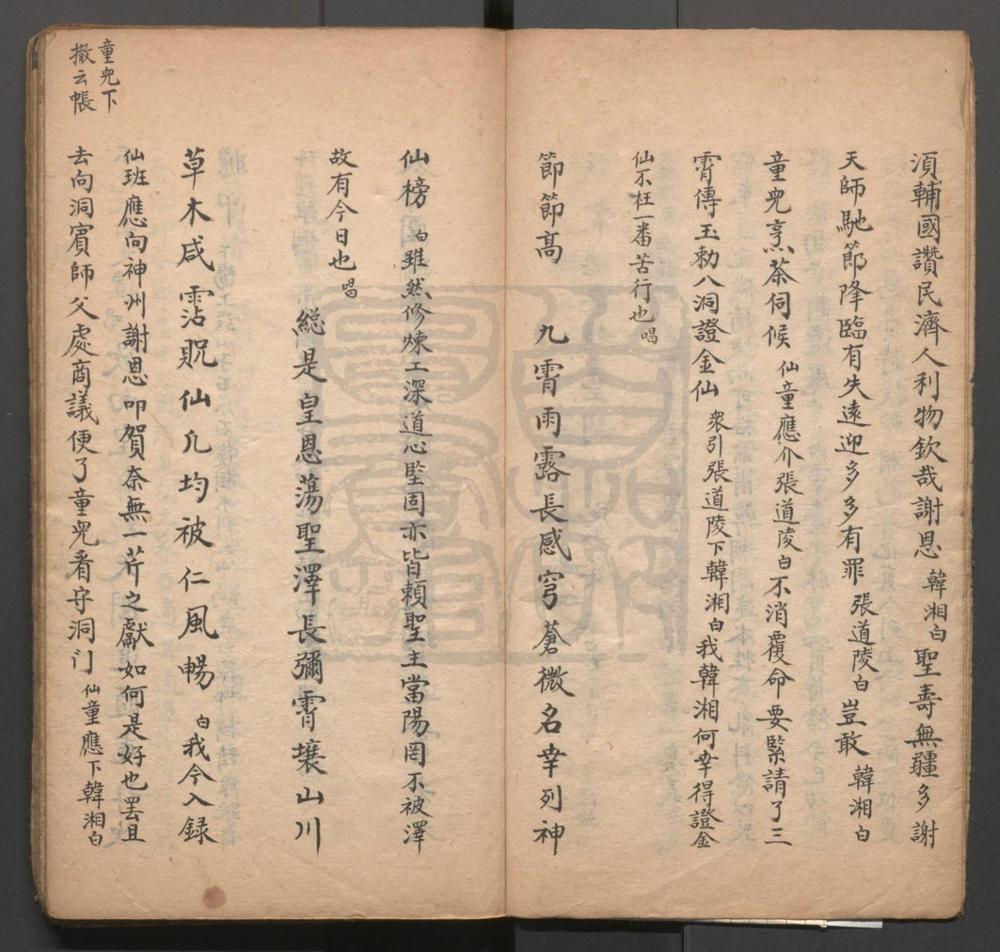 須輔國讚民濟人利物欽哉謝恩 韓湘白 聖壽無疆多謝
天師馳節降臨有失遠迎多多有罪 張道陵白 豈敢 韓湘白
童兒烹茶伺候 仙童應介張道陵白 不消覆命要緊請了三
霄傳玉勅八洞證金仙 衆引張道陵下韓湘白 我韓湘何幸得證金
仙不枉一番苦行也 唱
節節高 九霄雨露長感穹蒼微名幸列神
仙榜 白 雖然修煉工深道心堅固亦皆賴聖主當陽罔不被澤
故有今日也 唱
総是皇恩蕩聖澤長彌霄壤山川
草木咸霑貺仙凡均被仁風暢 白 我今入録
仙班應向神州謝恩叩賀奈無一芹之獻如何是好也罷且
去向洞賓師父處商議便了童兒看守洞门 仙童應下韓湘白
童兒下
撤云帳